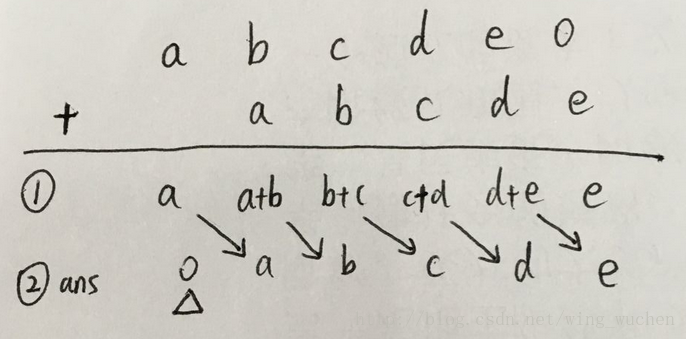 a b c d e 0
+ a b c d e
① a a+b b+c c+d d+e e
② ans 0 a b c d e
http://blog.csdn.net/wing_wuchen